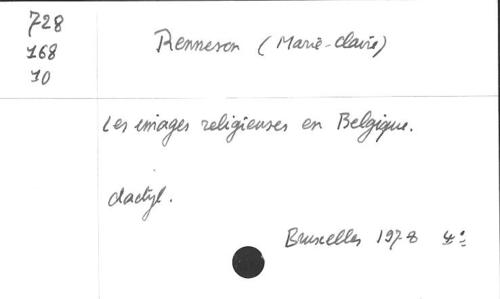 728
168
10
Renneson (Marie-Claire)
Les images religieuses en Belgique.
dactyl.
Bruxelles 1978 4º